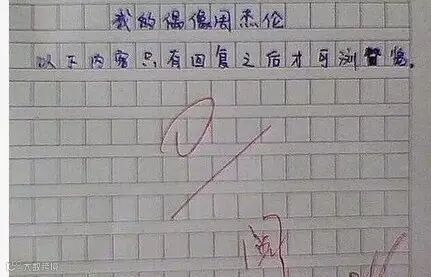 我的偶像周杰伦
以下内容只有回复之后才可浏览。
0
阅
大数跨境